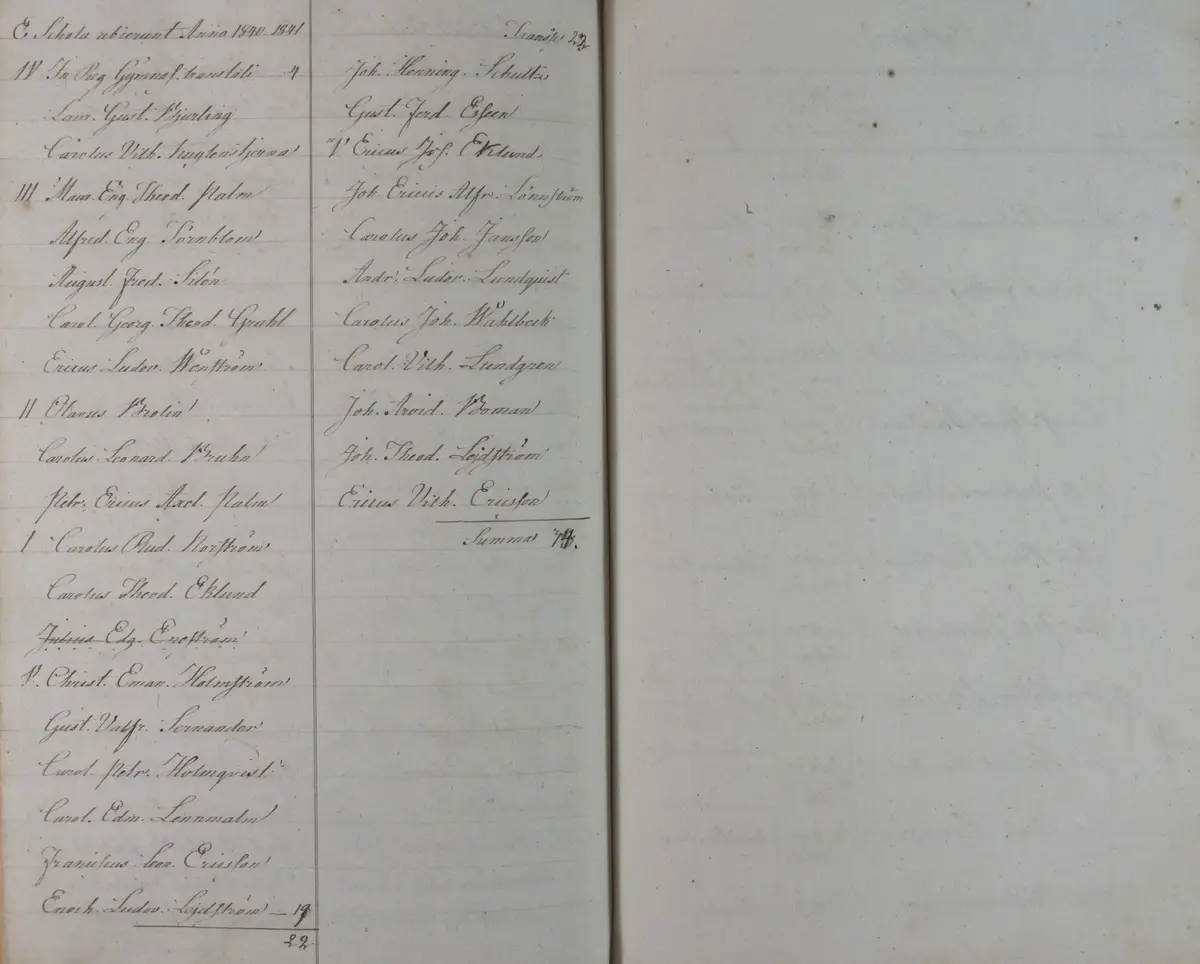 E Schola abierunt Anno 1840-1841
IV In Reg Gymnas. translati 4
Laur. Gust. Bjurling
Carolus Vilh. Leijonstjerna
III Maur. Eng. Theod. Palm
Alfred. Eng. Törnblom
August. Fred. Silén
Carol. Georg. Theod. Grahl
Ericus Ludov. Wenström
II Olavus Brolin
Carolus Leonard. Bruhn
Petr. Ericus Axel. Palm
I Carolus Rud. Norström
Carolus Theod. Eklund
Julius Edg. Eneström
V. Christ. Eman. Holmström
Gust. Valfr. Sernander
Carol. Petr. Holmqvist
Carol. Edm. Lennmalm
Franciscus Leon. Ericsson
Enoch. Ludov. Lejdström — 19
22
Transp. 22
Joh. Henning. Schultz
Gust. Ferd. Essen
V Ericus Jos. Eklund
Joh Ericus Alfr. Lönnström
Carolus Joh. Jansson
Andr. Ludov. Lundqvist
Carolus Joh. Wahlbeck
Carol. Vilh. Lundgren
Joh. Arvid. Boman
Joh. Theod. Lejdström
Ericus Vilh. Ericsson
Summa